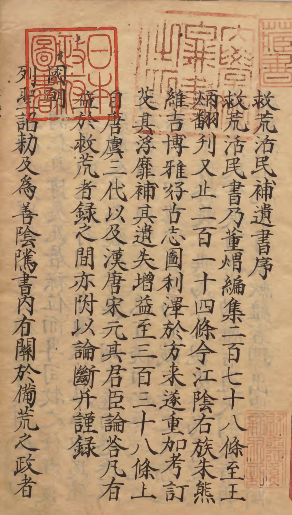 救荒活民補遺書序
救荒活民書乃董煟編集二百七十八條至王
炳翻刊又止二百一十四條今江陰石族朱熊
維吉博雅好古志圖利澤於方来遂重加考訂
芟其浮靡補其遺失增益至三百三十八條上
自唐虞三代以及漢唐宋元其君臣論荅凡有
益於救荒者録之間亦附以論斷并謹録
國朝
列聖詔勑及為善陰隲書内有關於備荒之政者
日本
政府
圖書